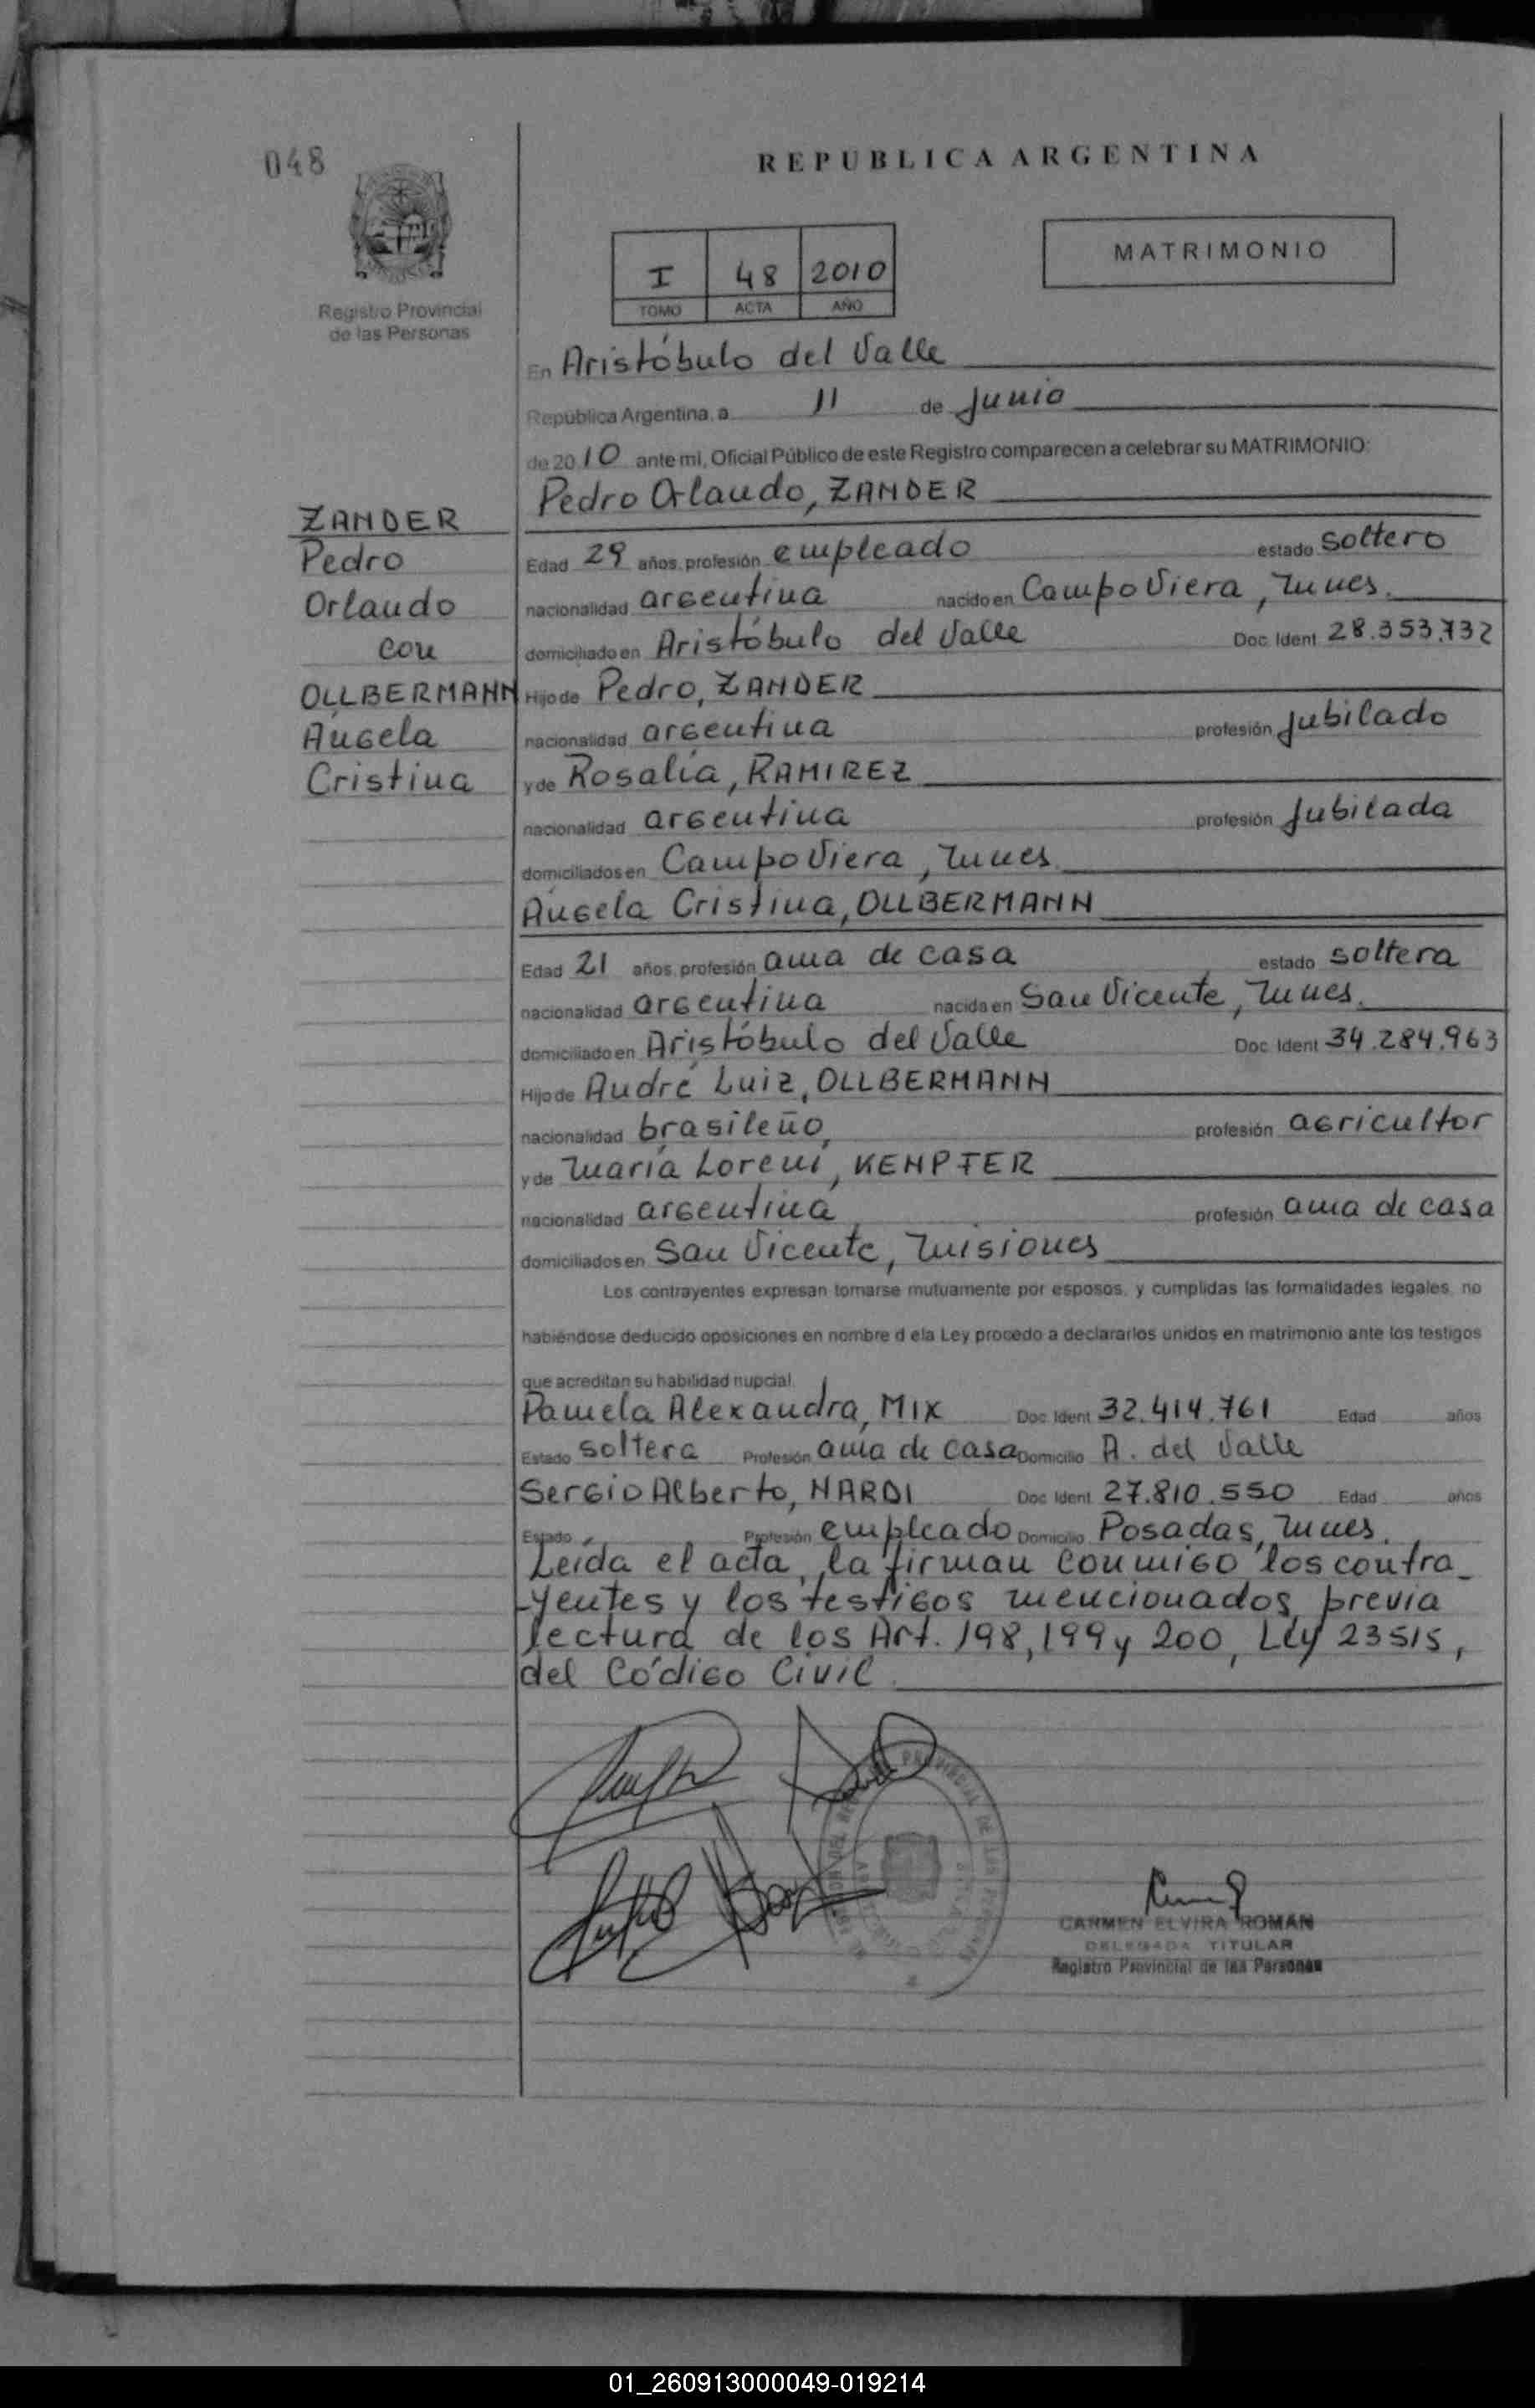 048
REPUBLICA ARGENTINA
Registro Provincial
de las Personas
I 48 2010
TOMO ACTA AÑO
MATRIMONIO
En Aristóbulo del Valle
República Argentina, a 11 de junio
de 2010 ante mi, Oficial Público de este Registro comparecen a celebrar su MATRIMONIO:
Pedro Orlando, ZANDER
ZANDER
Pedro
Orlando
con
OLLBERMANN
Ángela
Cristina
Edad 29 años, profesión empleado estado soltero
nacionalidad argentina nacido en Campo Viera, Mnes.
domiciliado en Aristóbulo del Valle Doc Ident 28.353.732
Hijo de Pedro, ZANDER
nacionalidad argentina profesión jubilado
y de Rosalía, RAMIREZ
nacionalidad argentina profesión jubilada
domiciliados en Campo Viera, Mnes.
Ángela Cristina, OLLBERMANN
Edad 21 años, profesión ama de casa estado soltera
nacionalidad argentina nacida en San Vicente, Mnes.
domiciliado en Aristóbulo del Valle Doc Ident 34.284.963
Hijo de André Luiz, OLLBERMANN
nacionalidad brasileño, profesión agricultor
y de María Loreni, KEMPFER
nacionalidad argentina profesión ama de casa
domiciliados en San Vicente, Misiones
Los contrayentes expresan tomarse mutuamente por esposos, y cumplidas las formalidades legales, no
habiéndose deducido oposiciones en nombre d ela Ley procedo a declararlos unidos en matrimonio ante los testigos
que acreditan su habilidad nupcial.
Pamela Alexandra, MIX Doc Ident 32.414.761 Edad años
Estado soltera Profesión ama de casa Domicilio A. del Valle
Sergio Alberto, NARDI Doc Ident 27.810.550 Edad años
Estado Profesión empleado Domicilio Posadas, Mnes.
Leída el acta, la firman conmigo los contra_
yentes y los testigos mencionados, previa
lectura de los Art. 198, 199 y 200, Ley 23515,
del Código Civil.
CARMEN ELVIRA ROMAN
DELEGADA TITULAR
Registro Provincial de las Personas
01_260913000049-019214